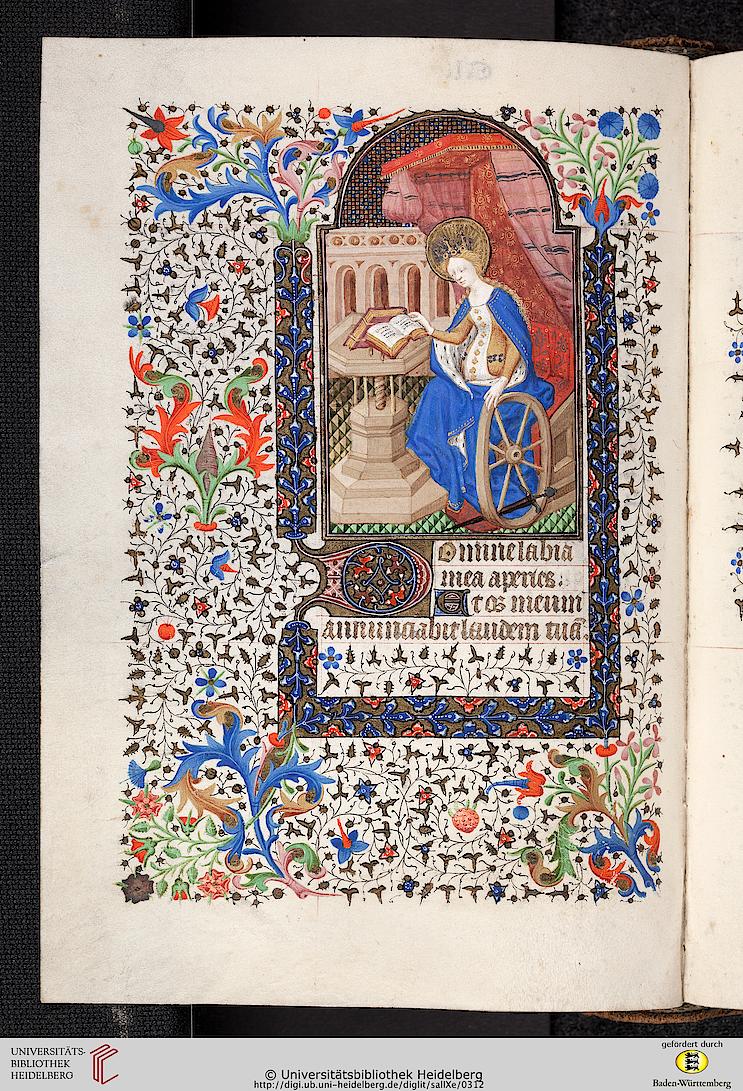 Domine labia
mea aperies.
Et os meum
annunciabit laudem tuā.
UNIVERSITÄTS-
BIBLIOTHEK
HEIDELBERG
© Universitätsbibliothek Heidelberg
http://digi.ub.uni-heidelberg.de/diglit/salIXe/0312
gefördert durch
Baden-Württemberg